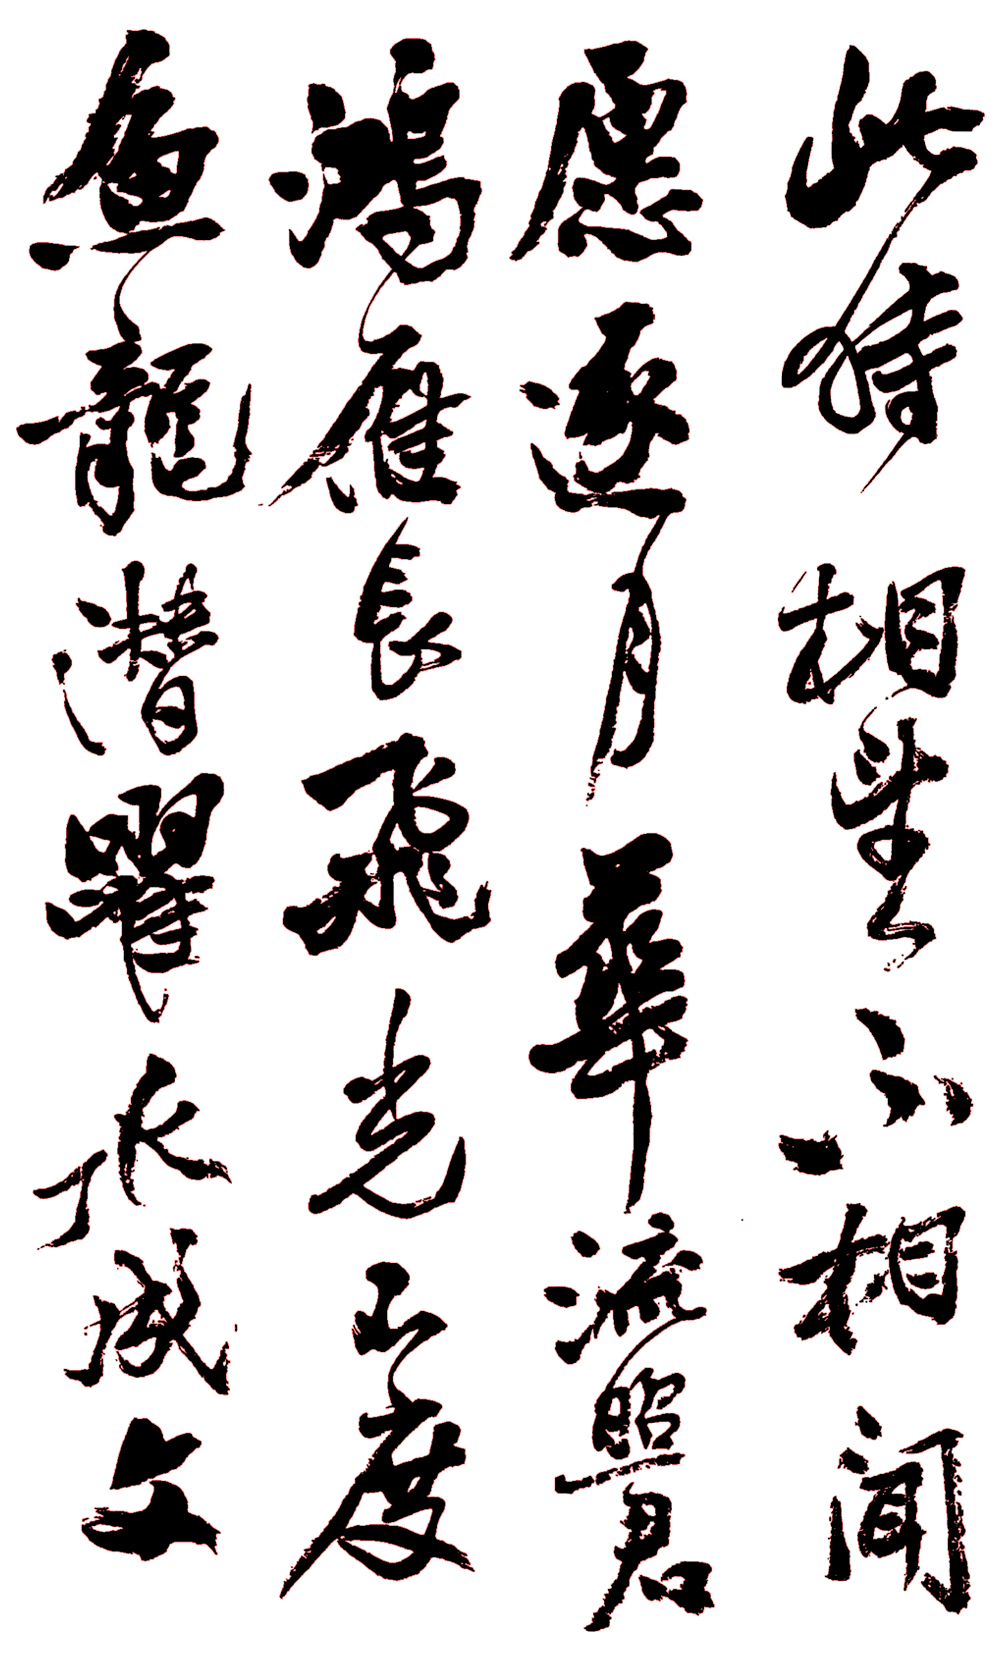 此时相望不相闻
愿逐月華流照君
鴻雁長飛光不度
魚龍潜躍水成文